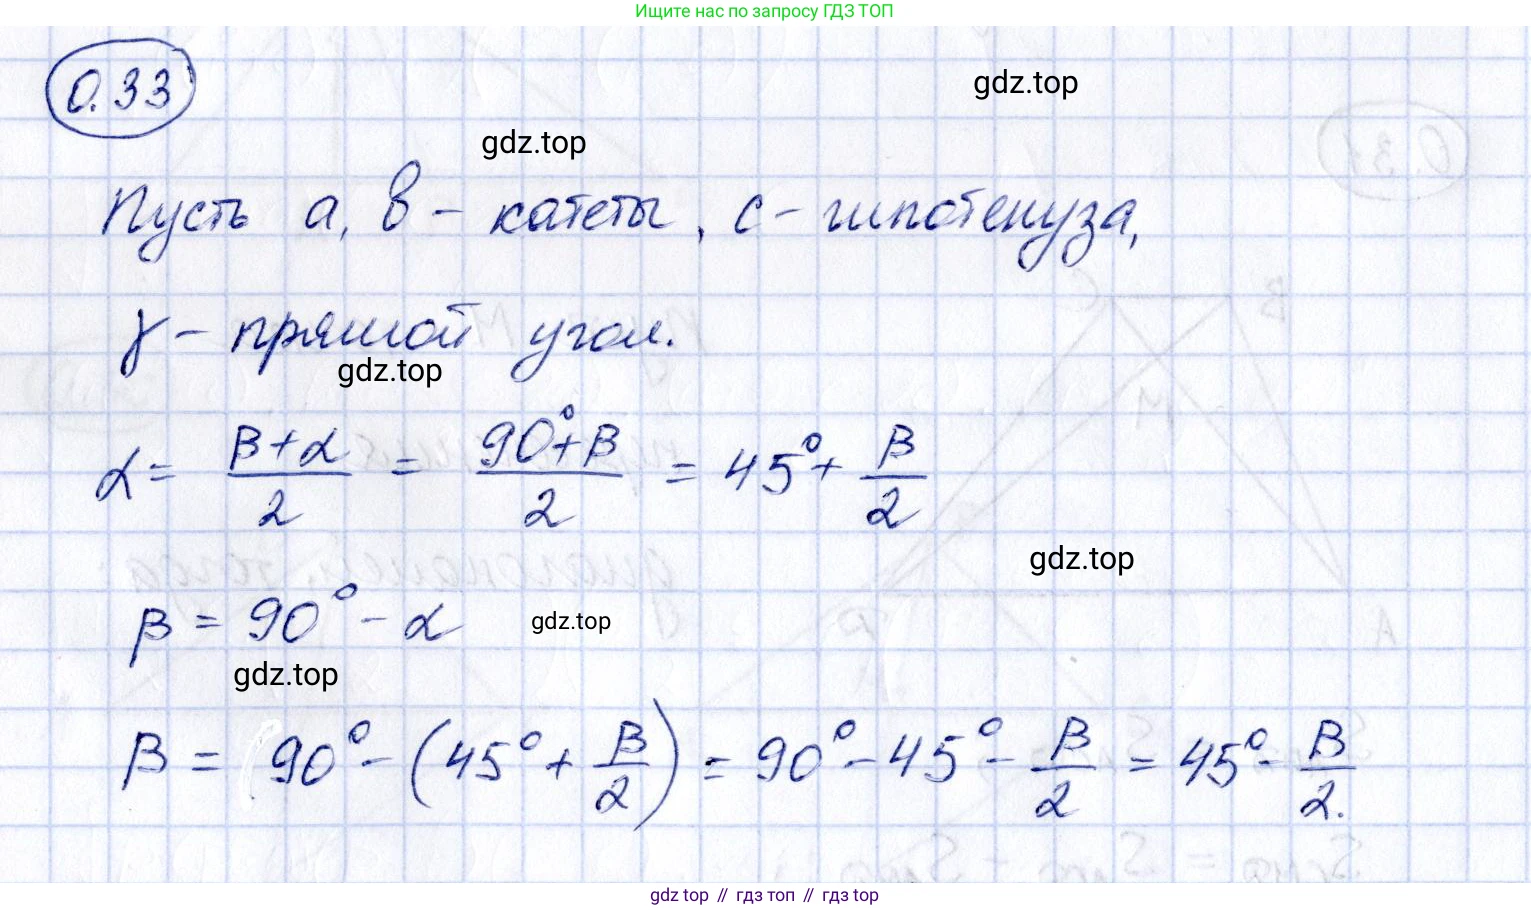 Ищите нас по запросу ГДЗ ТОП
0.33
gdz.top
gdz.top
Пусть a, b - катеты, c - гипотенуза,
γ - прямой угол.
gdz.top
α = (β+α)/2 = (90°+β)/2 = 45° + β/2
gdz.top
β = 90° - α
gdz.top
gdz.top
β = 90° - (45° + β/2) = 90° - 45° - β/2 = 45° - β/2.
gdz top // гдз топ // гдз top